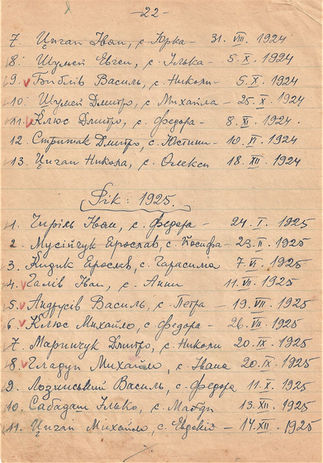 -22-
7 Циган Іван, с. Юрка- 31. VIII. 1924
8. Шумей Євген, с. Ілька- 5. X. 1924
9. Біблів Василь, с. Николи- 5. X. 1924
10. Шумей Дмитро, с. Михайла- 25. X. 1924
11. Клюс Дмитро, с. Федора- 8. XI. 1924.
12. Дмитро, с. Юстини- 10. XI. 1924
13. Циган Никола, с. Олекси 18. XII. 1924
Рік: 1925.
1. Чуріль Іван, с. Федора- 24. I. 1925
2. Мусійчук Ярослав, с. Йосифа- 23. II. 1925
3. Кидик Ярослав, с. Гарасима 7. VI. 1925
4. Галів Іван, с. Анни 11. VII. 1925
5. Андрусів Василь, с. Петра- 19. VII. 1925
6. Клюс Михайло, с. Федора- 26. VII. 1925
7 Маринчук Дмитро, с. Николи 20. IX. 1925
8. Гладун Михайло, с. Івана 20. IX. 1925
9. Лозинський Василь, с. Федора 11. X. 1925
10. Сабадаш Ілько, с. 13. XII. 1925
11. Циган Михайло, с. Евдокії- 14. XII. 1925